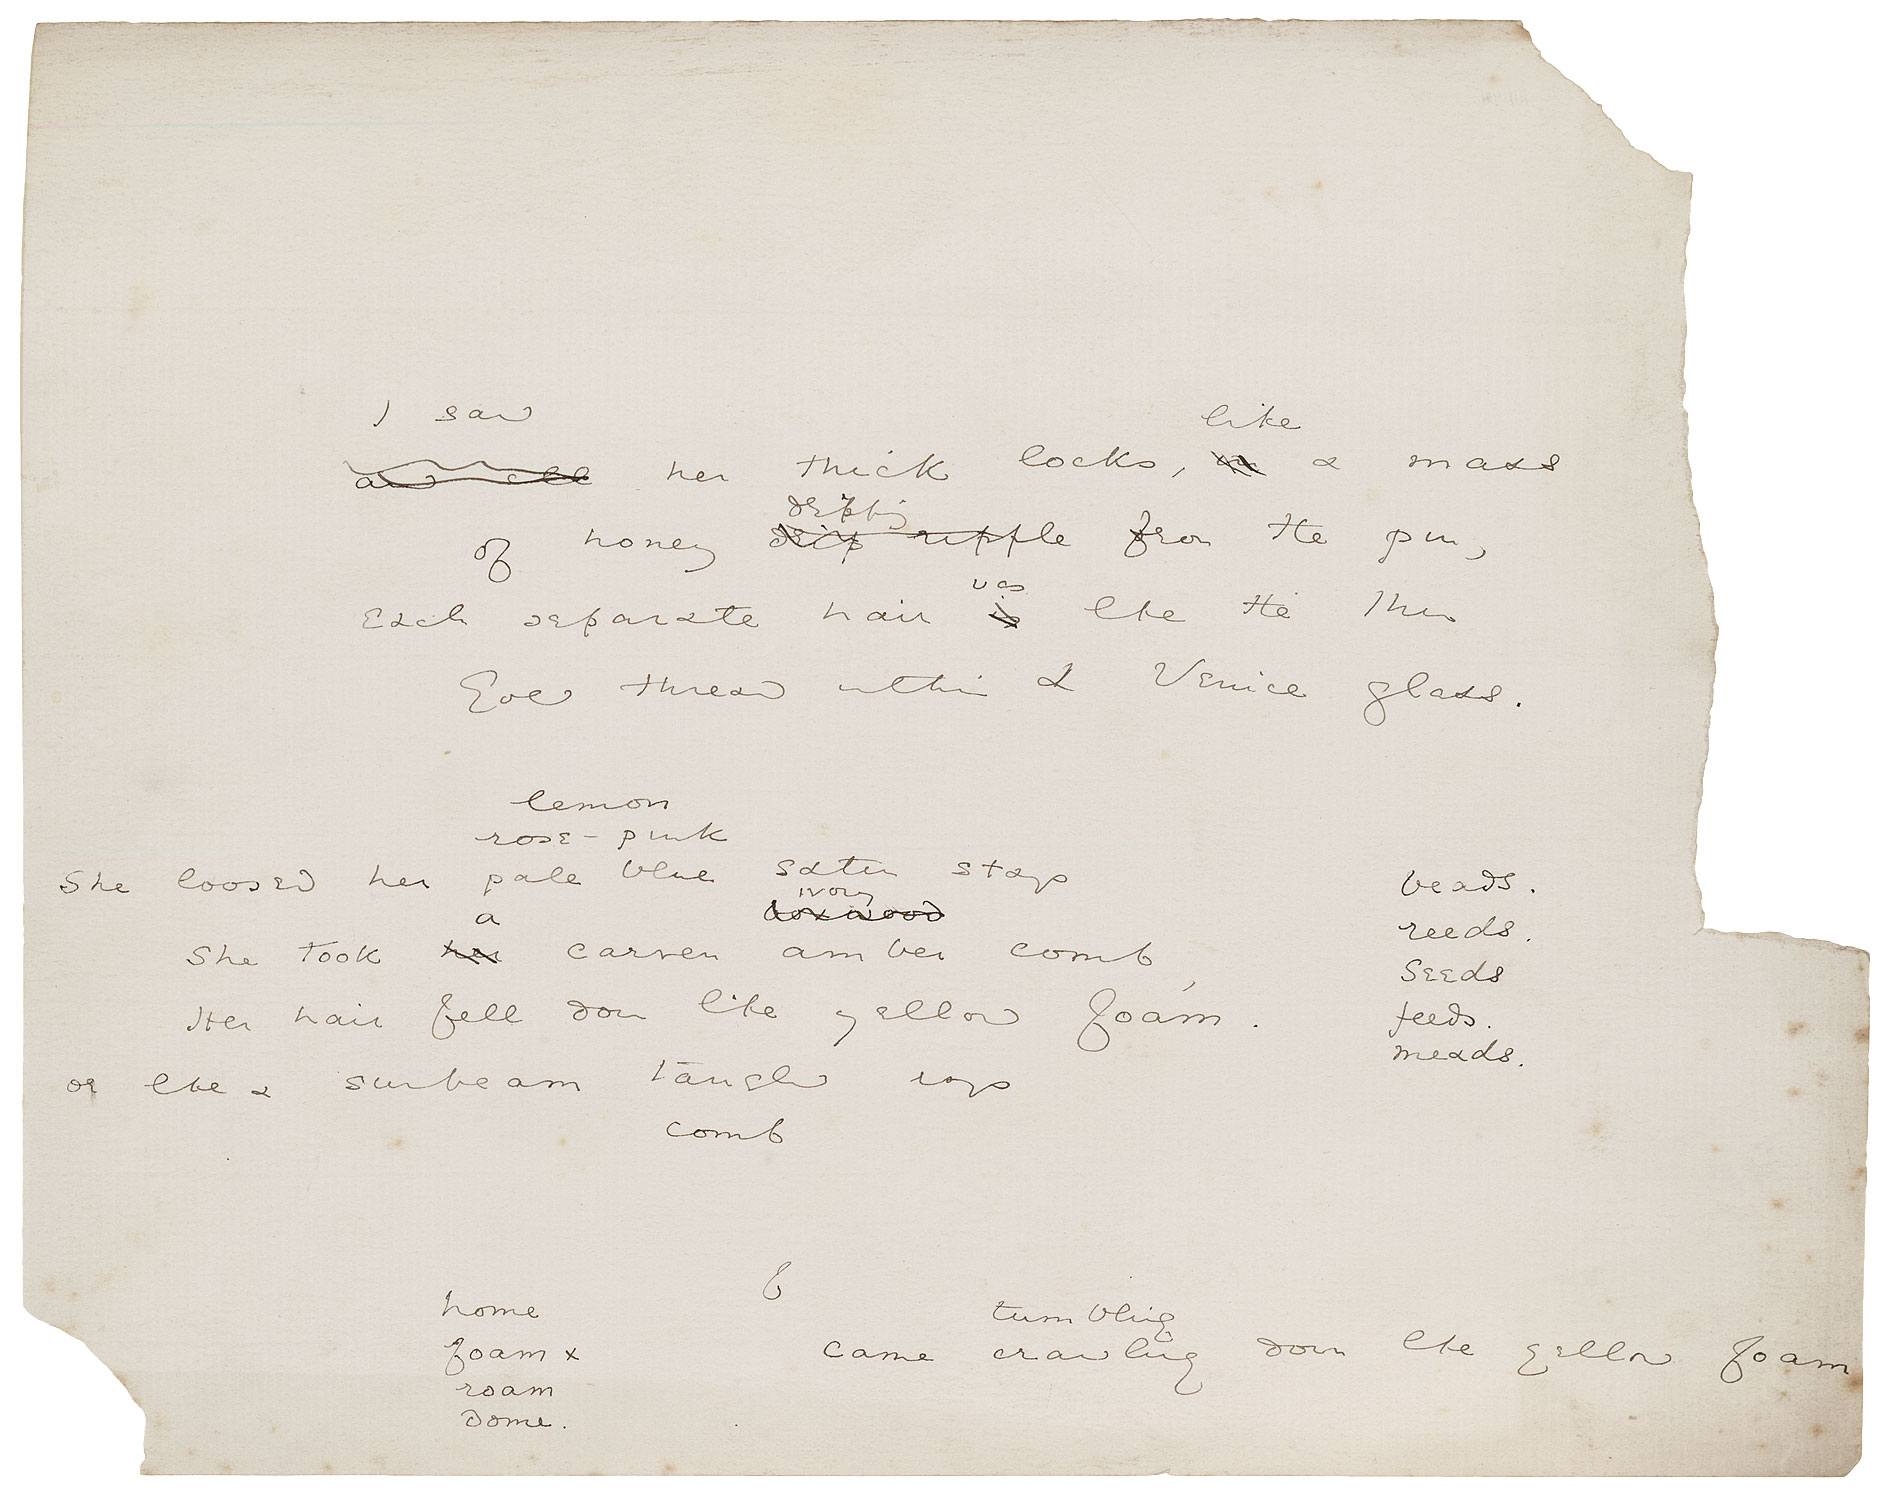 I saw like
and all her thick locks, in a mass
dripping
of honey drip ripple from the pin,
Each separate hair is like the thin
was
Gold thread within a Venice glass.
lemon
rose-pink
She loosed her pale blue satin stays
ivory
a boxwood
She took her carven amber comb,
Her hair fell down like yellow foam.
or like a sunbeam tangled rays
comb
beads.
reeds.
Seeds
feeds.
meads.
b
home tumbling
foam x came crawling down like yellow foam
roam
dome.